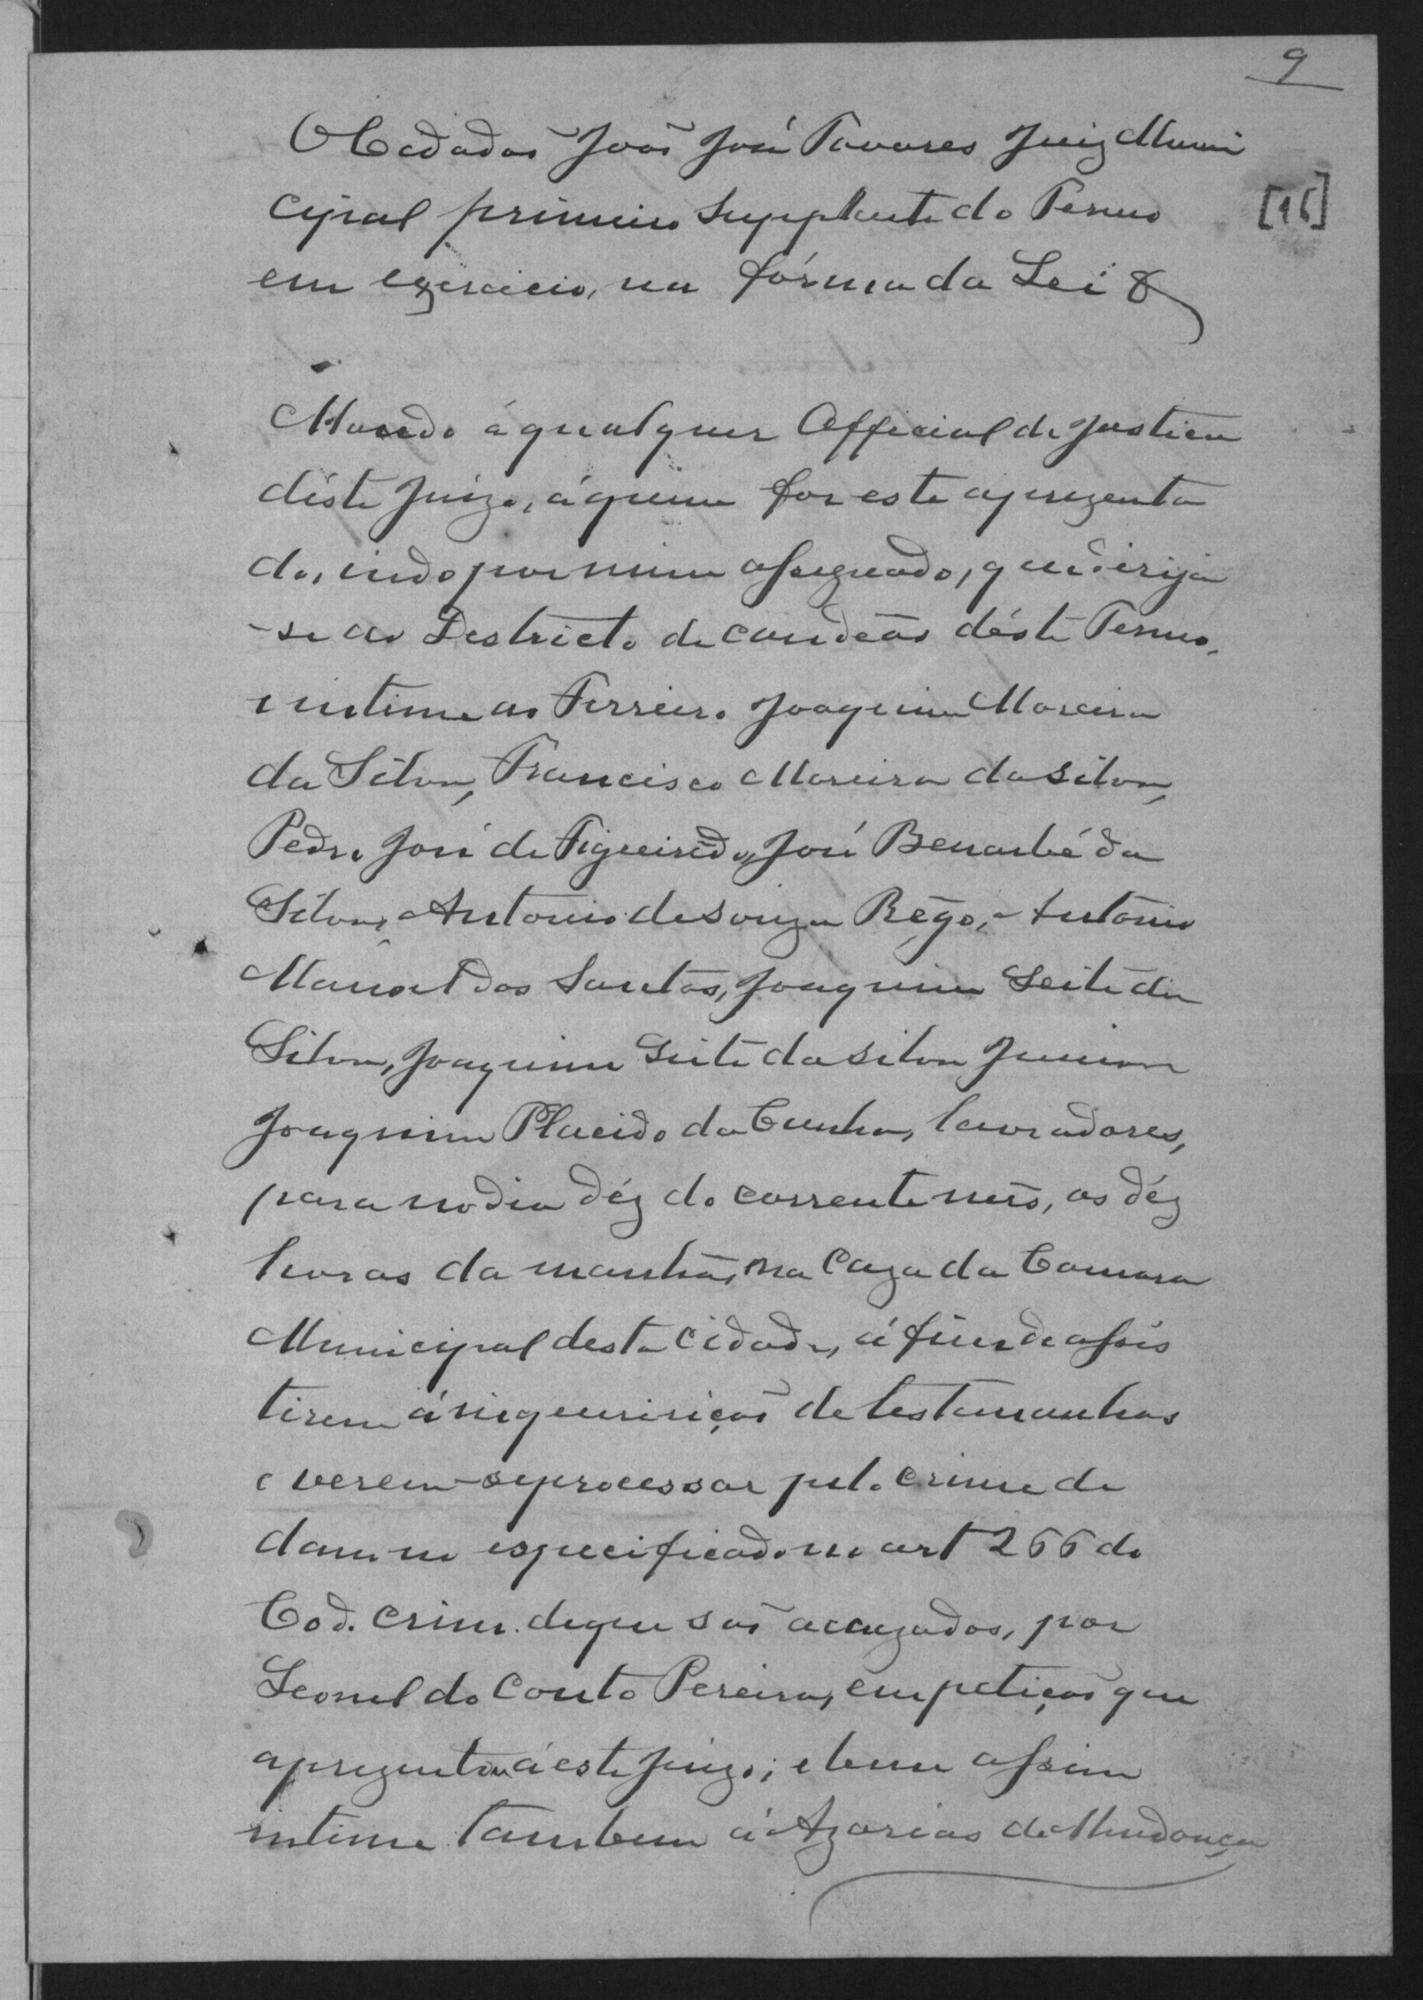 9
O Cidadão João José Tavares Juiz Muni
[16]
cipal primeiro Supplente do Termo
em exercicio, na fórma da Lei &
Mando á qualquer Official de Justica
déste Juizo, á quem for este aprezenta
do, indo por mim assignado, que dirija
-se ao Destricto de Candeas déste Termo,
e intime ao Ferreiro Joaquim Moreira
da Silva, Francisco Moreira da Silva,
Pedro José de Figueirêdo, José Benarbé da
Silva, Antonio de Souza Rêgo, Antonio
Manoel dos Santos, Joaquim Leite da
Silva, Joaquim Leite da Silva Junior
Joaquim Placido da Cunha, lavradores,
para no dia déz do corrente mês, as déz
horas da manhã, na Caza da Camara
Municipal desta Cidade, á fim de assis
tirem á niqueririção de testemunhas
e verem-se processar pelo crime de
damno especificado no art 266 do
Cod. Crim. de que são acuzados, por
Leonel do Couto Pereira, em petição que
aprezentou á este Juizo; e bem assim
intime tambem á Azarias de Mendonça